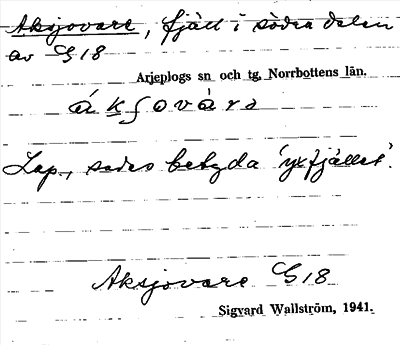 Aksjovare, fjäll i södra delen
av G18
Arjeplogs sn och tg, Norrbottens län.
ák̲ʃovàrə
Lap., sades betyda 'yxfjället'.
Aksjovare G18
Sigvard Wallström, 1941.